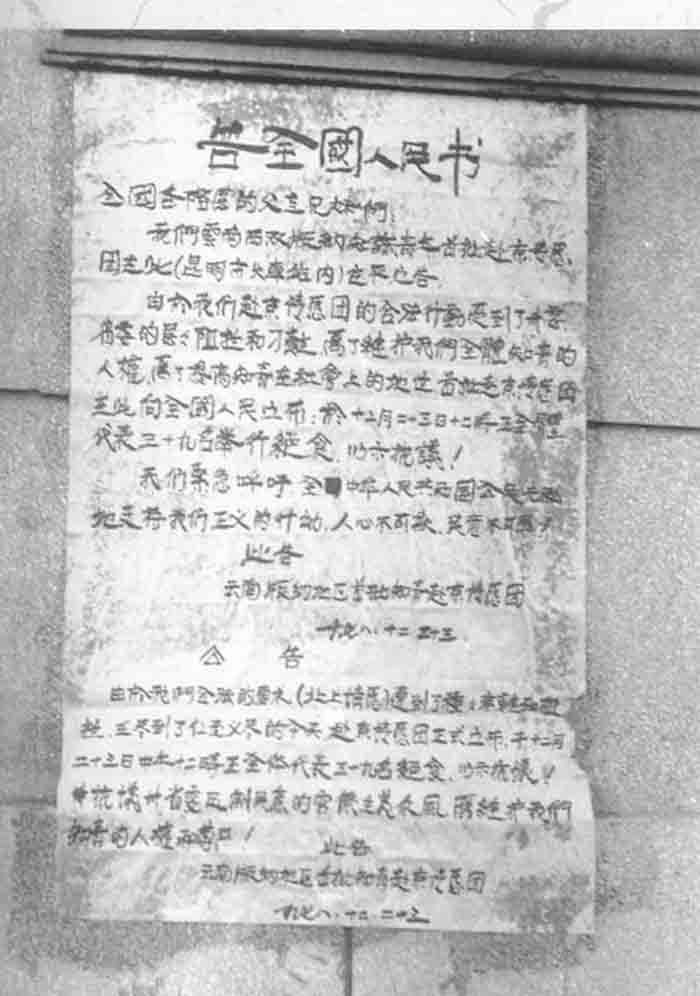 告全國人民书
全國各階层的父老兄弟姐们:
我們雲南西双版納知識青年首批赴京请愿
团在此(昆明市火車站内)庄严公告
由於我们赴京请愿团的合法行動遭到了
省委的 阻拦和刁难,為了维护我們全體知青的
人權,為了提高知青在社會上的地位首批赴京请愿团
在此向全國人民公布:於十二月二十三日十二時正全體
代表三十九名举行絕食,以示抗議!
我们緊急呼吁全 中华人民共和國全民
地支持我们正义的行動,人心不可欺,民意不可
此告
云南版納地区首批知青赴京请愿团
一九七八.十二.二十三.
公 告
由於我們合法的要求(北上请愿)遭到了種々
在尽到了仁至义尽的今天,赴京请愿团正式公布,于十二月
二十三日中午十二時正全体代表三十九名絕食,以示抗議!
抗議 省委 的官僚主義作風,為维护我們
知青的人權而尊严!
此告
云南版納地区首批知青赴京请愿团
一九七八.十二.二十三